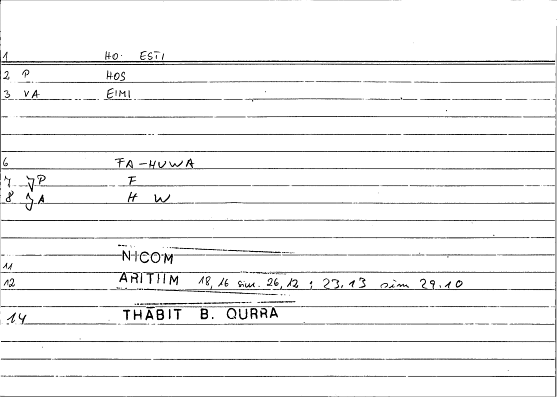 1 HO· ESTI
2 P HOS
3 VA EIMI
6 FA-HUWA
7 JP F
8 JA H W
11 NICOM
12 ARITIIM 18,16 sim. 26,12 ; 23.13 sim 29.10
14 THĀBIT B. QURRA